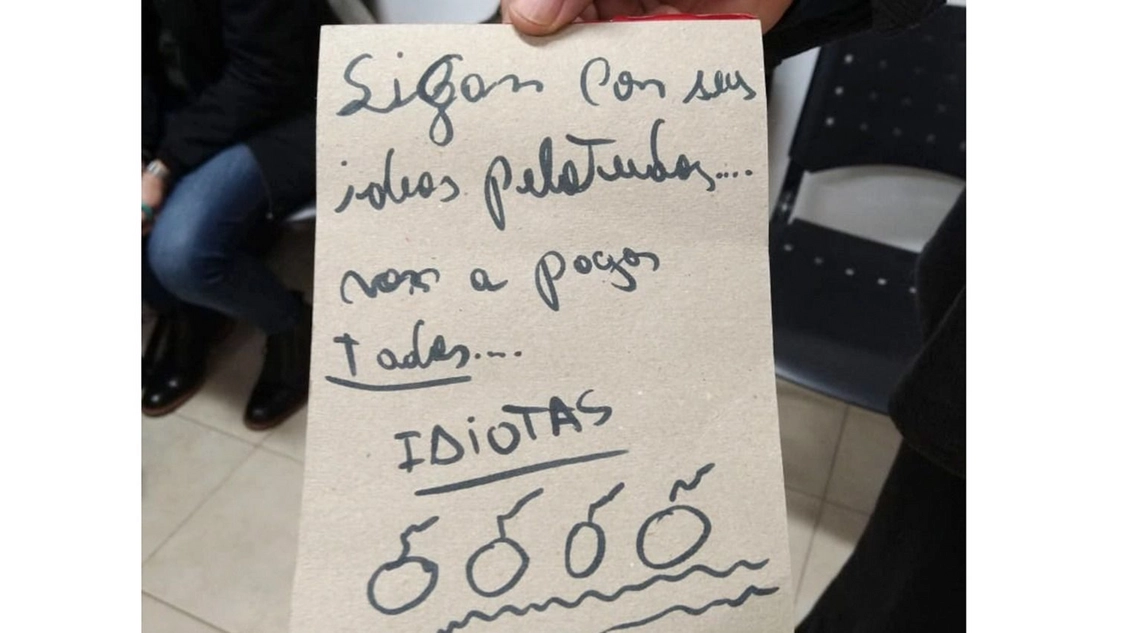 Sigan con sus
ideas pelotudas....
van a pagar
todos....
IDIOTAS